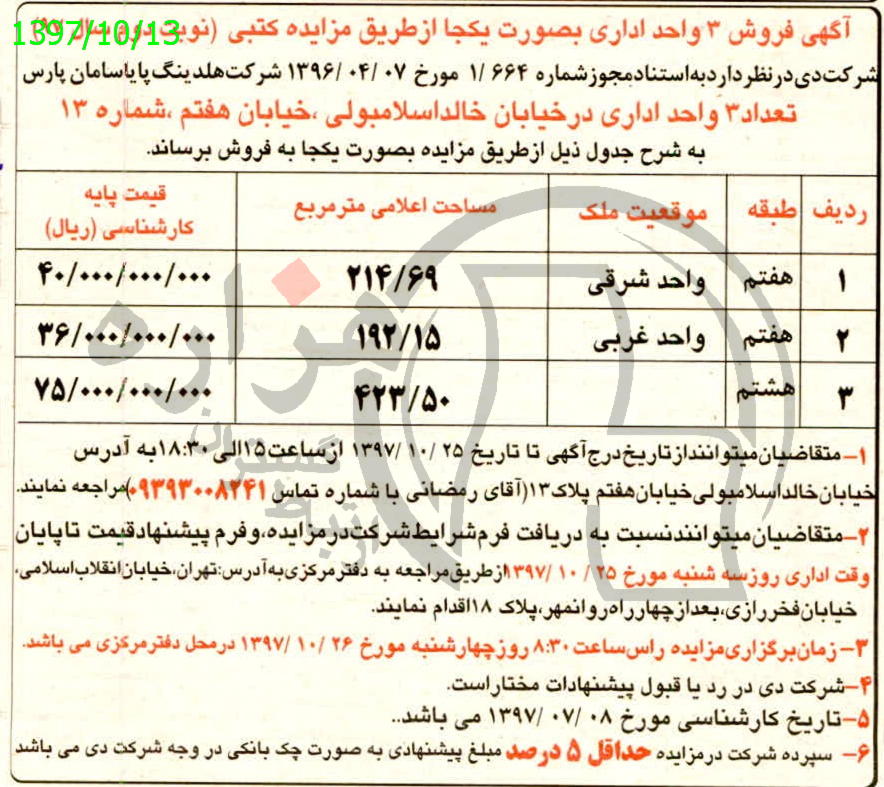 آگهی فروش ۳ واحد اداری بصورت یکجا ازطریق مزایده کتبی (نوبت دوم سال ۹۷)
1397/10/13
شرکت‌دی‌درنظرداردبه‌استنادمجوزشماره ۱/۶۶۴ مورخ ۱۳۹۶/۰۴/۰۷ شرکت‌هلدینگ‌پایاسامان پارس
تعداد۳ واحد اداری درخیابان خالداسلامبولی ،خیابان هفتم ،شماره ۱۳
به شرح جدول ذیل ازطریق مزایده بصورت یکجا به فروش برساند.
ردیف طبقه موقعیت ملک مساحت اعلامی مترمربع قیمت پایه کارشناسی (ریال)
۱ هفتم واحد شرقی ۲۱۴/۶۹ ۴۰/۰۰۰/۰۰۰/۰۰۰
۲ هفتم واحد غربی ۱۹۲/۱۵ ۳۶/۰۰۰/۰۰۰/۰۰۰
۳ هشتم ۴۲۳/۵۰ ۷۵/۰۰۰/۰۰۰/۰۰۰
۱-متقاضیان‌میتوانندازتاریخ‌درج‌آگهی تا تاریخ ۱۳۹۷/۱۰/۲۵ ازساعت۱۵الی۱۸:۳۰به آدرس
خیابان‌خالداسلامبولی‌خیابان‌هفتم پلاک۱۳(آقای رمضانی با شماره تماس ۰۹۳۹۳۰۰۸۲۴۱)مراجعه نمایند.
۲-متقاضیان‌میتوانندنسبت به دریافت فرم‌شرایط‌شرکت‌درمزایده،وفرم پیشنهادقیمت تاپایان
وقت اداری روزسه شنبه مورخ ۱۳۹۷/۱۰/۲۵ازطریق‌مراجعه به دفترمرکزی‌به‌آدرس:تهران،خیابان‌انقلاب‌اسلامی،
خیابان‌فخررازی،بعدازچهارراه‌روانمهر،پلاک ۱۸اقدام نمایند.
۳-زمان‌برگزاری‌مزایده راس‌ساعت۸:۳۰ روزچهارشنبه مورخ ۱۳۹۷/۱۰/۲۶ درمحل دفترمرکزی می باشد.
۴-شرکت دی در رد یا قبول پیشنهادات مختاراست.
۵-تاریخ کارشناسی مورخ ۱۳۹۷/۰۷/۰۸ می باشد..
۶- سپرده شرکت درمزایده حداقل ۵ درصد مبلغ پیشنهادی به صورت چک بانکی در وجه شرکت دی می باشد